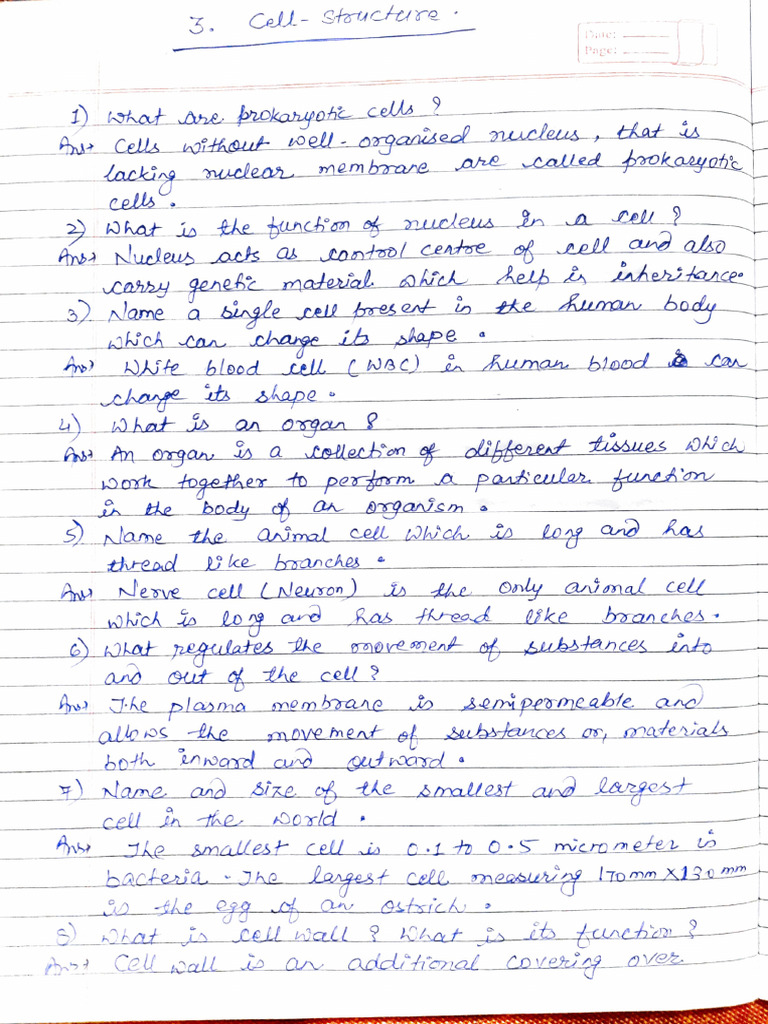 3. Cell-Structure.
Date:
Page:
1) What are prokaryotic cells?
Ans→ Cells without well-organised nucleus, that is
lacking nuclear membrane are called prokaryotic
cells.
2) What is the function of nucleus in a cell?
Ans→ Nucleus acts as control centre of cell and also
carry genetic material which help in inheritance.
3) Name a single cell present in the human body
which can change its shape.
Ans→ White blood cell (WBC) in human blood can
change its shape.
4) What is an organ?
Ans→ An organ is a collection of different tissues which
work together to perform a particular function
in the body of an organism.
5) Name the animal cell which is long and has
thread like branches.
Ans→ Nerve cell (Neuron) is the only animal cell
which is long and has thread like branches.
6) What regulates the movement of substances into
and out of the cell?
Ans→ The plasma membrane is semipermeable and
allows the movement of substances or, materials
both inward and outward.
7) Name and size of the smallest and largest
cell in the world.
Ans→ The smallest cell is 0.1 to 0.5 micrometer in
bacteria. The largest cell measuring 170mm×130mm
is the egg of an ostrich.
8) What is cell wall? What is its function?
Ans→ Cell wall is an additional covering over